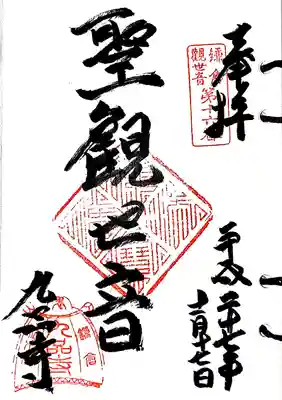 奉拝
鎌倉
觀世音
第十六番
聖觀世音
平成二十七年
月十七日
九品寺
鎌倉
九品寺